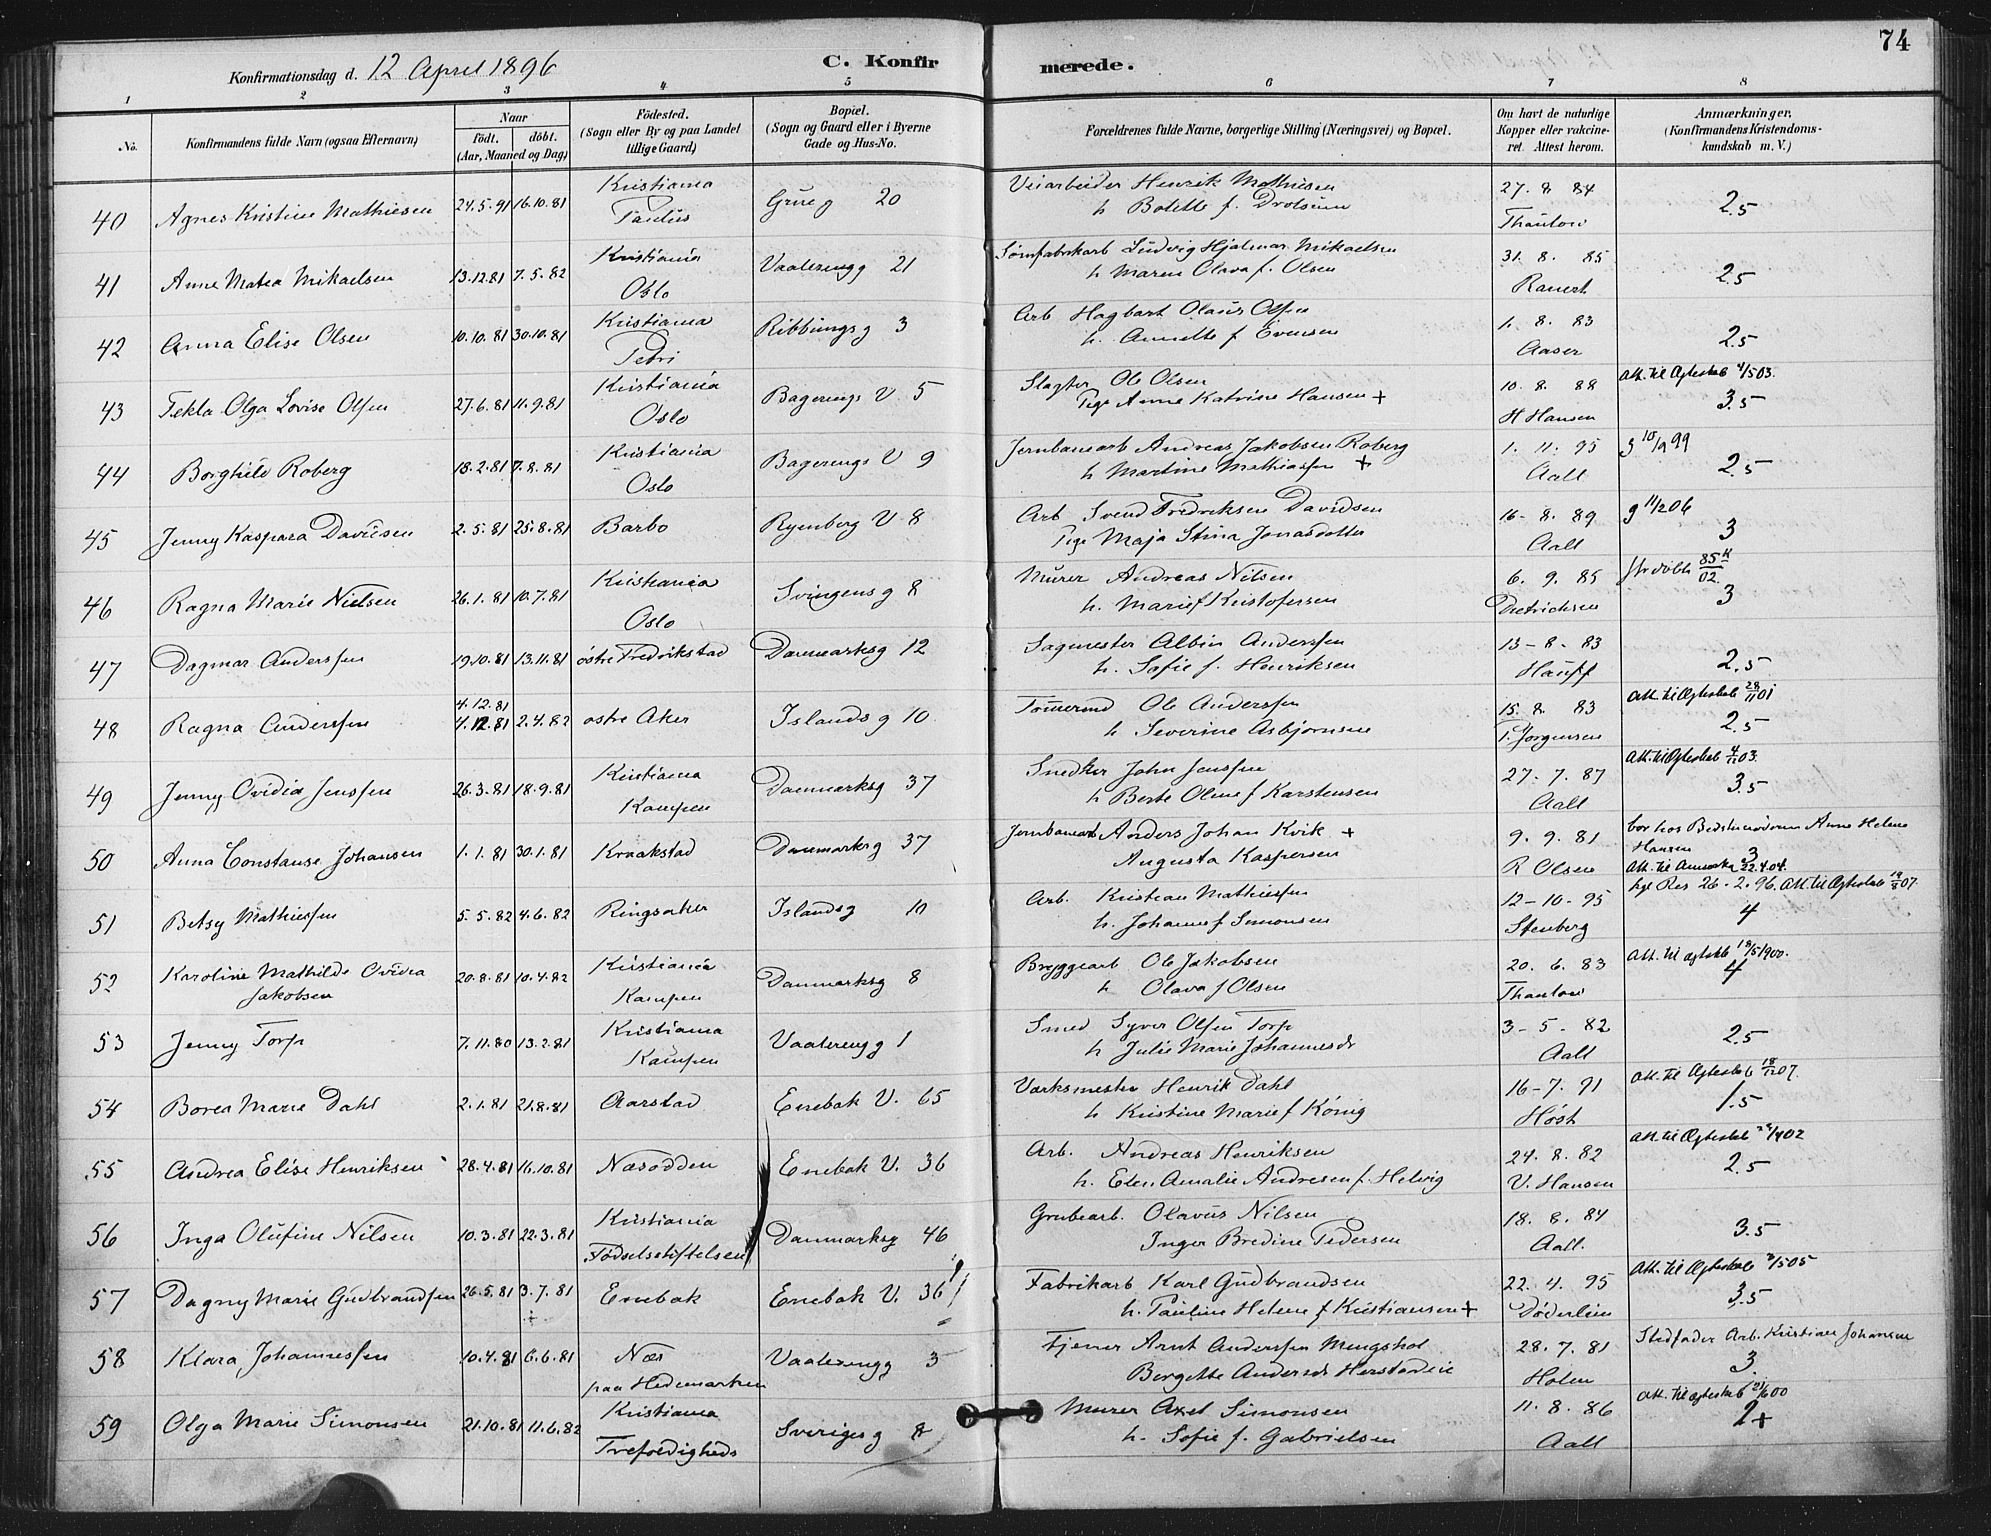 74
Konfirmationsdag d. 12 April 1896 C. Konfirmerede.
1 2 3 4 5 6 7 8
No. Konfirmandens fulde Navn (ogsaa Efternavn) Naar født. døbt. (Aar, Maaned og Dag) Fødested. (Sogn eller By og paa Landet tillige Gaard) Bopæl. (Sogn og Gaard eller i Byerne Gade og Hus-No. Forældrenes fulde Navne, borgerlige Stilling (Næringsvei) og Bopæl. Om havt de naturlige Kopper eller vaccineret. Attest herom. Anmærkninger. (Konfirmandens Kristendomskundskab m. V.)
40 Agnes Kristine Mathiesen 24.5.91 16.10.81 Kristiania Paulus Grüneg 20 Veiarbeider Henrik Mathiesen
h. Bolette f. Drolsum 27. 8 84 Thaulow 2.5
41 Anne Matea Mikaelsen 13.12.81 7.5.82 Kristiania Oslo Vaalerengg 21 Sømfabrikarb Ludvig Hjalmar Mikaelsen
h. Maren Olava f. Olsen 31. 8. 85 Ranert 2.5
42 Anna Elise Olsen 10.10.81 30.10.81 Kristiania Petri Ribbungsg 3 Arb Hagbart Olaus Olsen
h. Annette f Evensen 1. 8. 83 Aaser 2.5
43 Tekla Olga Lovise Olsen 27.6.81 11.9.81 Kristiania Oslo Bagerengs V. 5 Slagter Ole Olsen
Pige Anne Katrine Hansen + 10. 8. 88 H Hansen Att. til Ægteskab 4/5 03.
3.5
44 Borghild Roberg 18.2.81 7.8.81 Kristiania Oslo Bagerengs V 9 Jernbanearb Andreas Jakobsen Roberg
h Martine Mathiassen + 1. 11. 95 Aall g 10/9 99
2.5
45 Jenny Kaspara Davidsen 2.5.81 25.8.81 Barbo Ryenberg V 8 Arb Svend Fredriksen Davidsen
Pige Maja Stina Jonasdotter 16- 8. 89 Aall g 11/2 06
3
46 Ragna Marie Nielsen 26.1.81 10.7.81 Kristiania Oslo Svingensg 8 Murer Andreas Nilsen
h. Marie f Kristofersen 6. 9. 85 Dietrichsen 85/02
3
47 Dagmar Anderssen 19.10.81 13.11.81 østre Fredrikstad Danmarksg 12 Sagmester Albin Anderssen
h. Sofie f. Henriksen 13-8-83 Hauff 2.5
48 Ragna Anderssen 4.12.81
4.12.81 2.4.82 østre Aker Islandsg 10 Tømmermd Ole Anderssen
h Severine Asbjørnsen 15. 8. 83 T. Jørgensen Att. til Ægteskab 28/11 01
2.5
49 Jenny Ovidia Jenssen 26.3.81 18.9.81 Kristiania Kampen Danmarksg 37 Snedker John Jenssen
h Berte Oline f Karstensen 27. 7. 87 Aall Att. til Ægteskab 4/11 03.
3.5
50 Anna Constanse Johansen 1.1.81 30.1.81 Kraakstad Danmarksg 37 Jernbanearb Anders Johan Kvik +
Augusta Kaspersen 9. 9. 81 R Olsen bor hos Bedstemoderen Anne Helene Hansen 3
51 Betsy Mathiessen 5.5.82 4.6.82 Ringsaker Islandsg 10 Arb. Kristian Mathiessen
h. Johanne f Simonsen 12-10-95 Stenberg kgl Res 26.2.96. Att. til Ægteskab 19/8 07.
4
52 Karoline Mathilde Ovidia Jakobsen 20.8.81 10.4.82 Kristiania Kampen Danmarksg 8 Bryggearb Ole Jakobsen
h Olava f Olsen 20. 6. 83 Thaulow Att. til Ægteskab 18/5 1900.
4
53 Jenny Torp 7.11.80 13.2.81 Kristiania Kampen Vaalerengg 1 Smed Syver Olsen Torp
h Julie Marie Johannesdr 3-5-82 Aall 2.5
54 Borea Marie Dahl 2.1.81 21.8.81 Aarstad Enebak V. 65 Værksmester Henrik Dahl
h Kristine Marie f König 16-7. 91 Høst Att. til Ægteskab 18/12 07.
1.5
55 Andrea Elise Henriksen 28.4.81 16.10.81 Næsodden Enebak V. 36 Arb. Andreas Henriksen
h. Elen Amalie Andresen f. Helvig 24. 8. 82 V. Hansen Att. til Ægteskab 02
2.5
56 Inga Olufine Nilsen 10.3.81 22.3.81 Kristiania Fødselsstiftelsen Danmarksg 46 Grubearb. Olavus Nilsen
Inger Bredine Pedersen 18. 8. 84 Aall. 3.5
57 Dagny Marie Gudbrandsen 26.5.81 3.7.81 Enebak Enebak V. 36 Fabrikarb Karl Gudbrandsen
h. Pauline Helene f Kristiansen + 22. 4. 95 Døderlein Att. til Ægteskab 05
3.5
58 Klara Johannessen 10.4.81 6.6.81 Næs paa Hedemarken Vaalerengg 3 Tjener Arnt Anderssen Mengshol
Bergette Andersdr 28. 7. 81 Holen Stedfader Arb. Kristian Johansen
3
59 Olga Marie Simonsen 21.10.81 11.6.82 Kristiania Trefoldigheds Sverigesg 8 Murer Axel Simonsen
h. Sofie f. Gabrielsen 11. 8. 86 Aall Att. til Ægteskab 21/6 00
2+